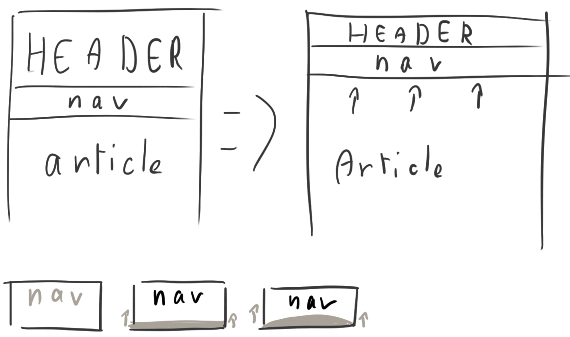 HEADER
nav
article
=>
HEADER
nav
Article
nav
nav
nav